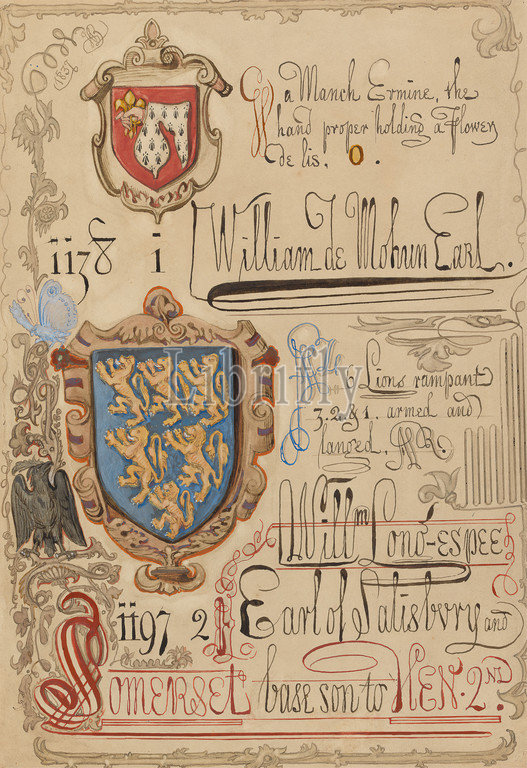 1837
G a Manch Ermine, the
hand proper holding a Flower
de lis. O.
1138 1 William de Mohun Earl.
Librifly
Az 6 Lions rampant
3. 2. & 1. armed and
langed.
Willm Long-espee
1197 2 Earl of Salisbury and
Somerset base son to HEN. 2ND.